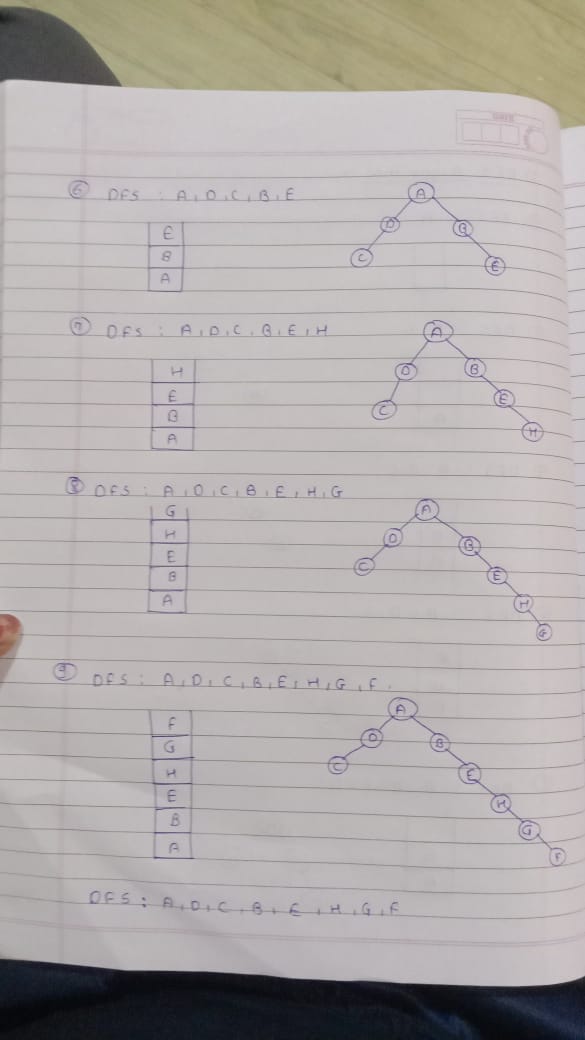 ⑥ DFS : A, D, C, B, E
E
B
A
A
D
B
C
E
⑦ DFS : A, D, C, B, E, H
H
E
B
A
A
D
B
C
E
H
⑧ DFS : A, D, C, B, E, H, G
G
H
E
B
A
A
D
B
C
E
H
G
⑨ DFS : A, D, C, B, E, H, G, F.
F
G
H
E
B
A
A
D
B
C
E
H
G
F
DFS : A, D, C, B, E, H, G, F